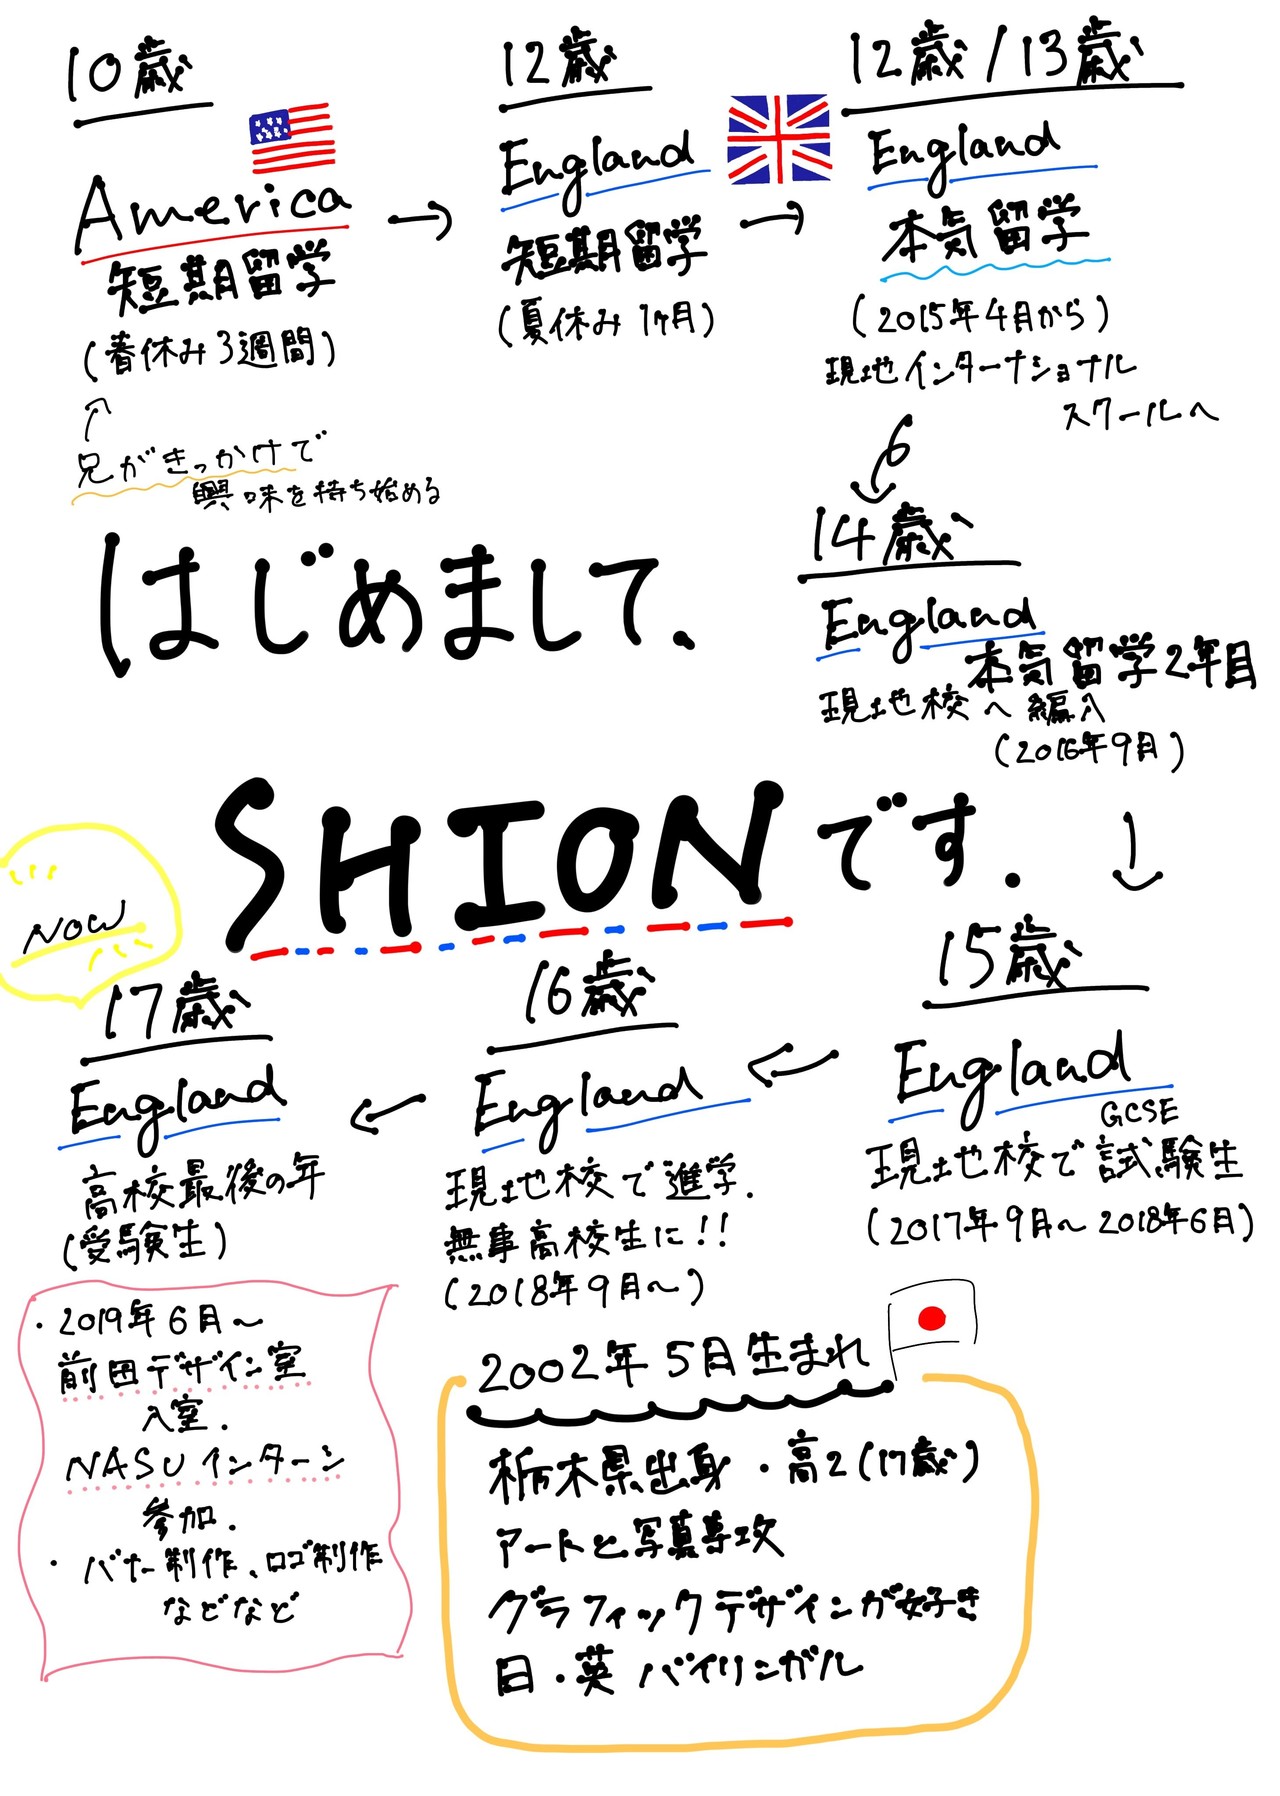 10歳
America
短期留学
(春休み3週間)
兄がきっかけで
興味を持ち始める
12歳
England
短期留学
(夏休み1ヶ月)
12歳/13歳
England
本気留学
(2015年4月から)
現地インターナショナル
スクールへ
はじめまして、
14歳
England
本気留学2年目
現地校へ編入
(2016年9月)
SHIONです.
15歳
England
GCSE
現地校で試験生
(2017年9月～2018年6月)
16歳
England
現地校で進学.
無事高校生に!!
(2018年9月～)
NOW
17歳
England
高校最後の年
(受験生)
・2019年6月～
前田デザイン室
入室.
NASUインターン
参加.
・バナー制作、ロゴ制作
などなど
2002年5月生まれ
栃木県出身・高2(17歳)
アートと写真専攻
グラフィックデザインが好き
日・英バイリンガル